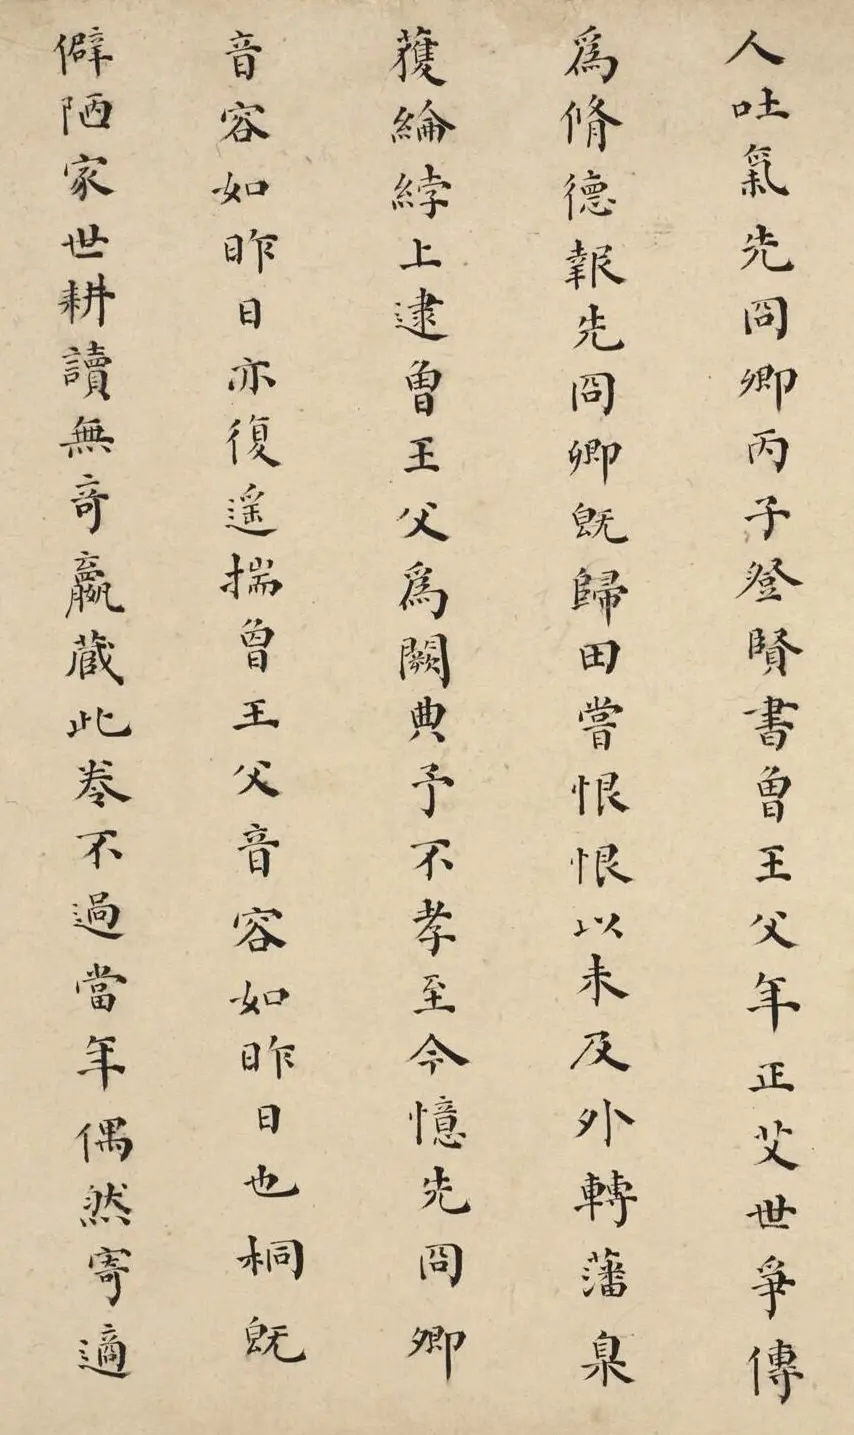 人吐氣先冏卿丙子登賢書曾王父年正艾世爭傳
為脩德報先冏卿既歸田嘗恨恨以未及外轉藩臬
蒦綸綍上逮曾王父為闕典予不孝至今憶先冏卿
音容如昨日亦復遥揣曾王父音容如昨日也桐既
僻陋家世耕讀無奇贏蔵此卷不過當年偶然寄適